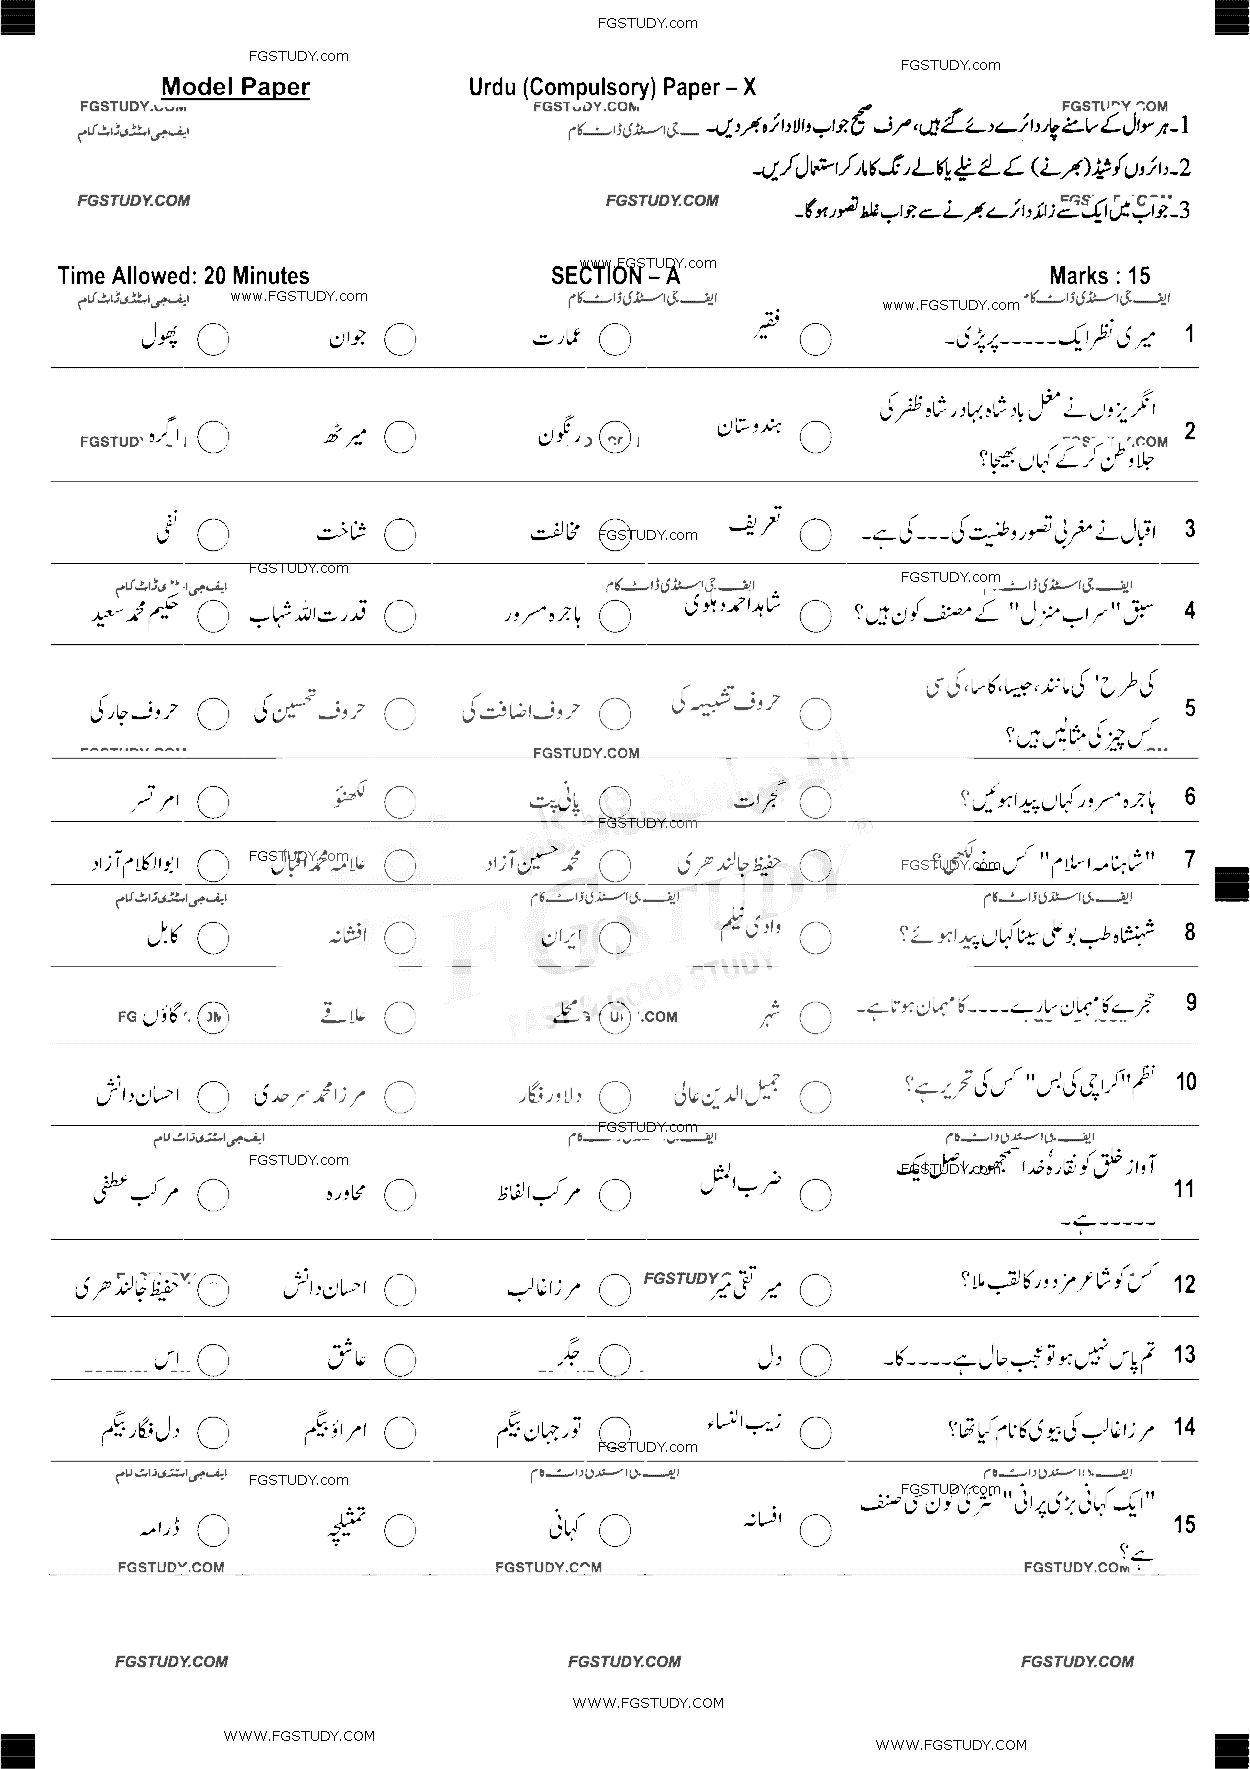 FGSTUDY.com
FGSTUDY.com
FGSTUDY.com
Model Paper Urdu (Compulsory) Paper – X
FGSTUDY.COM FGSTUDY.COM FGSTUDY.COM
1۔ہر سوال کے سامنے چار دائرے دئے گئے ہیں، صرف صحیح جواب والا دائرہ بھر دیں۔
2۔دائروں کو شیڈ (بھرنے) کے لئے نیلے یا کالے رنگ کا مارکر استعمال کریں۔
FGSTUDY.COM FGSTUDY.COM
3۔جواب میں ایک سے زائد دائرے بھرنے سے جواب غلط تصور ہوگا۔
www.FGSTUDY.com
Time Allowed: 20 Minutes SECTION – A Marks : 15
ایف جی اسٹڈی ڈاٹ کام www.FGSTUDY.com ایف جی اسٹڈی ڈاٹ کام www.FGSTUDY.com ایف جی اسٹڈی ڈاٹ کام
1 میری نظر ایک-----پر پڑی۔ فقیر عمارت جوان پھول
2 انگریزوں نے مغل بادشاہ بہادر شاہ ظفر کی
جلاوطن کر کے کہاں بھیجا؟ ہندوستان رنگون میرٹھ آگرہ
3 اقبال نے مغربی تصور وطنیت کی---کی ہے۔ تعریف مخالفت شناخت نفی
FGSTUDY.com
FGSTUDY.com FGSTUDY.com
ایف جی اسٹڈی ڈاٹ کام ایف جی اسٹڈی ڈاٹ کام
4 سبق "سراب منزل" کے مصنف کون ہیں؟ شاہد احمد دہلوی ہاجرہ مسرور قدرت اللہ شہاب حکیم محمد سعید
5 کی طرح' کی مانند، جیسا، کا سا، کی سی
کس چیز کی مثالیں ہیں؟ حروف تشبیہ کی حروف اضافت کی حروف تحسین کی حروف جار کی
FGSTUDY.COM
6 ہاجرہ مسرور کہاں پیدا ہوئیں؟ گجرات پانی پت لکھنؤ امرتسر
FGSTUDY.com
7 "شاہنامہ اسلام" کس نے لکھی؟ حفیظ جالندھری محمد حسین آزاد علامہ محمد اقبال ابوالکلام آزاد
FGSTUDY.com FGSTUDY.com
ایف جی اسٹڈی ڈاٹ کام ایف جی اسٹڈی ڈاٹ کام ایف جی اسٹڈی ڈاٹ کام
8 شہنشاہ طب بو علی سینا کہاں پیدا ہوئے؟ وادی نیلم ایران افشانہ کابل
FGSTUDY
FAST & GOOD STUDY
9 حجرے کا مہمان سارے----کا مہمان ہوتا ہے۔ شہر محلے علاقے گاؤں
10 نظم "کراچی کی بس" کس کی تحریر ہے؟ جمیل الدین عالی دلاور فگار مرزا محمد سرحدی احسان دانش
FGSTUDY.com
FGSTUDY.com FGSTUDY.com
11 آواز خلق کو نقارہ خدا سمجھو۔ دراصل ایک
-----ہے۔ ضرب المثل مرکب الفاظ محاورہ مرکب عطفی
12 کس کو شاعر مزدور کا لقب ملا؟ میر تقی میر مرزا غالب احسان دانش حفیظ جالندھری
FGSTUDY
13 تم پاس نہیں ہو تو عجب حال ہے----کا۔ دل جگر عاشق اس
14 مرزا غالب کی بیوی کا نام کیا تھا؟ زیب النساء نور جہان بیگم امراؤ بیگم دل نگار بیگم
FGSTUDY.com
FGSTUDY.com FGSTUDY.com
15 "ایک کہانی بڑی پرانی" نثر کی کون سی صنف
ہے؟ افسانہ کہانی تمثیلچہ ڈرامہ
FGSTUDY.COM FGSTUDY.COM FGSTUDY.COM
FGSTUDY.COM FGSTUDY.COM FGSTUDY.COM
WWW.FGSTUDY.COM
WWW.FGSTUDY.COM
WWW.FGSTUDY.COM